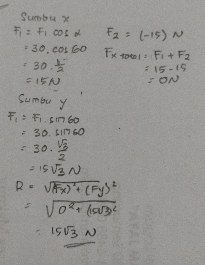 Sumbu x
F₁ = F₁ cos α
= 30. cos 60
= 30. ½
= 15 N
F₂ = (-15) N
Fx total = F₁ + F₂
= 15 - 15
= 0N
Sumbu y
F₁ = F₁. sin 60
= 30. sin 60
= 30. √3/2
= 15√3 N
R = √(Fx)² + (Fy)²
= √0² + (15√3)²
= 15√3 N